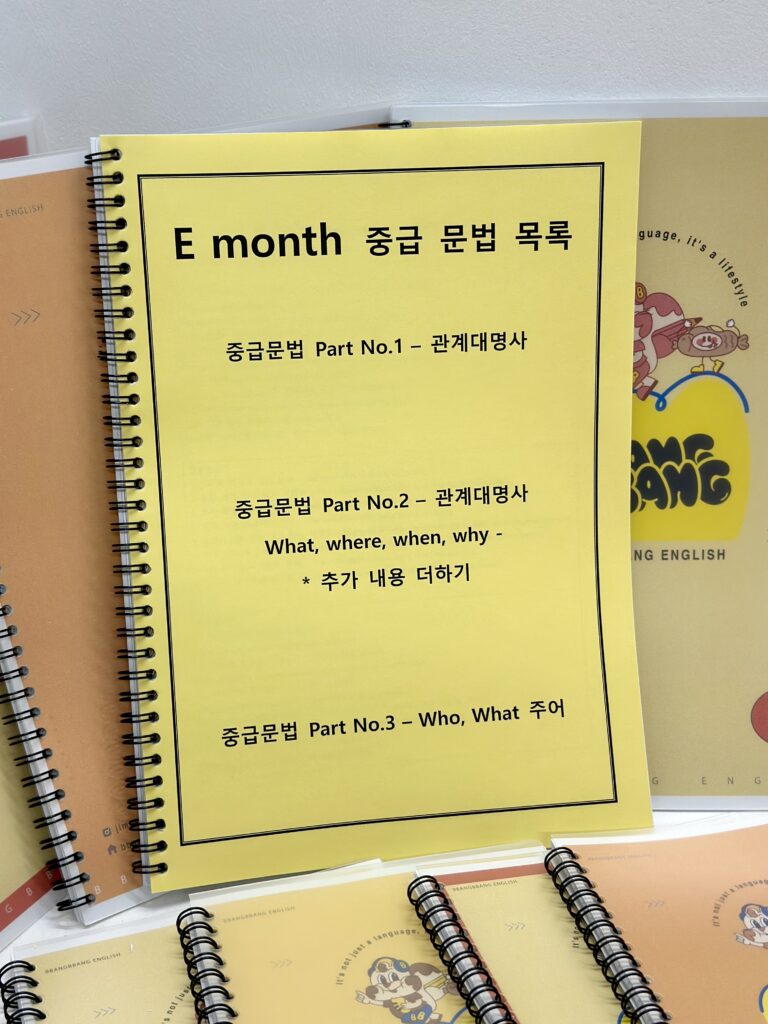 E month 중급 문법 목록
중급문법 Part No.1 – 관계대명사
중급문법 Part No.2 – 관계대명사
What, where, when, why -
* 추가 내용 더하기
중급문법 Part No.3 – Who, What 주어
ENGLISH
guage, it's a lifestyle
ANG
BANG
NG ENGLISH
E N G
BBANGBBANG ENGLISH
it's not just a language,
BBANGBBANG ENGLISH
it's not jus
BBANGBBANG ENGLISH
it's not just a